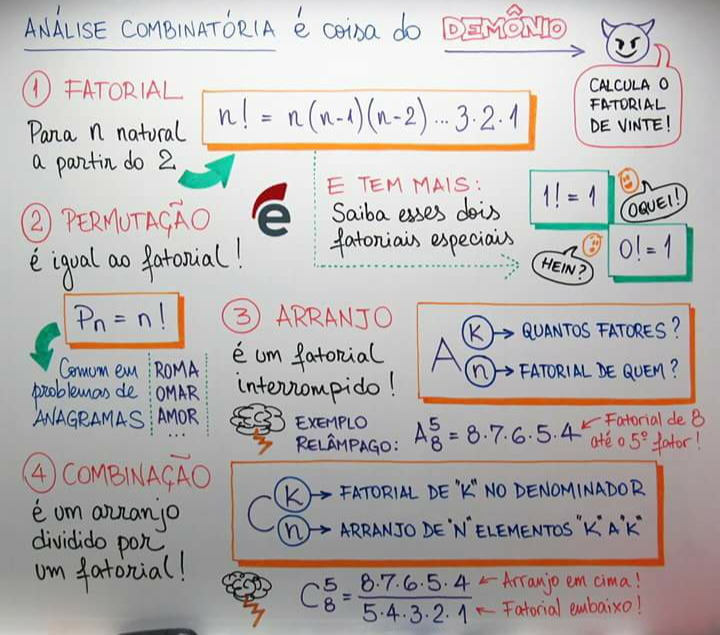 ANÁLISE COMBINATÓRIA é coisa do DEMÔNIO
CALCULA O
FATORIAL
DE VINTE!
1 FATORIAL
Para n natural
a partir do 2
n! = n(n-1)(n-2)...3·2·1
e
E TEM MAIS:
Saiba esses dois
fatoriais especiais
1! = 1
OQUEI!
0! = 1
HEIN?
2 PERMUTAÇÃO
é igual ao fatorial!
Pn = n!
Comum em
problemas de
ANAGRAMAS
ROMA
OMAR
AMOR
...
3 ARRANJO
é um fatorial
interrompido!
A
K → QUANTOS FATORES?
n → FATORIAL DE QUEM?
EXEMPLO
RELÂMPAGO:
A₈⁵ = 8·7·6·5·4
Fatorial de 8
até o 5º fator!
4 COMBINAÇÃO
é um arranjo
dividido por
um fatorial!
C
K → FATORIAL DE "K" NO DENOMINADOR
n → ARRANJO DE "N" ELEMENTOS "K" A "K"
C₈⁵ =
8·7·6·5·4 ← Arranjo em cima!
5·4·3·2·1 ← Fatorial embaixo!